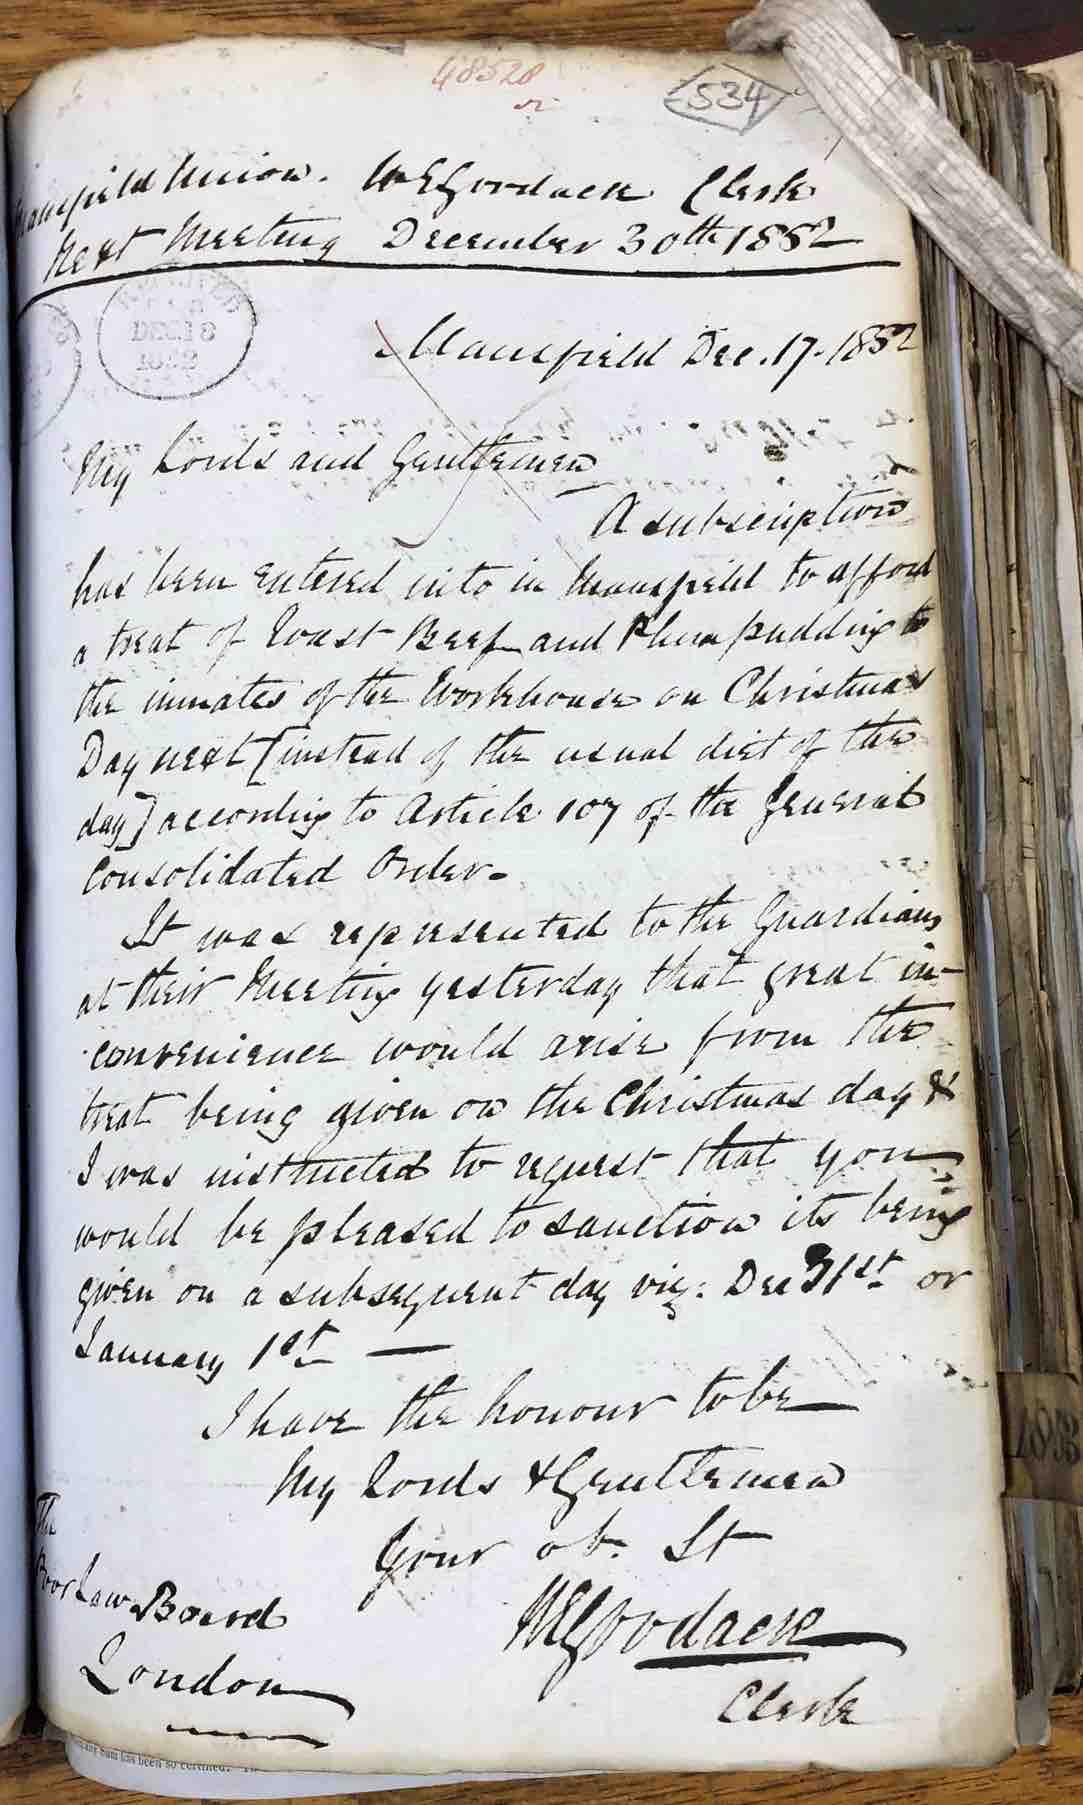 48528
534
Mansfield Union. W E Goodacre Clerk
Next Meeting December 30th 1852
DEC 18
1852
Mansfield Dec. 17. 1852
My Lords and Gentlemen
A subscription
has been entered into in Mansfield to afford
a treat of Roast Beef and Plum pudding to
the inmates of the Workhouse on Christmas
Day next [instead of the usual diet of the
day] according to Article 107 of the General
Consolidated Order.
It was represented to the Guardians
at their Meeting yesterday that great in-
convenience would arise from the
treat being given on the Christmas day &
I was instructed to request that you
would be pleased to sanction its being
given on a subsequent day viz: Dec 31st or
January 1st —
I have the honour to be
My Lords & Gentlemen
Your ob. St
W E Goodacre
Clerk
The
Poor Law Board
London